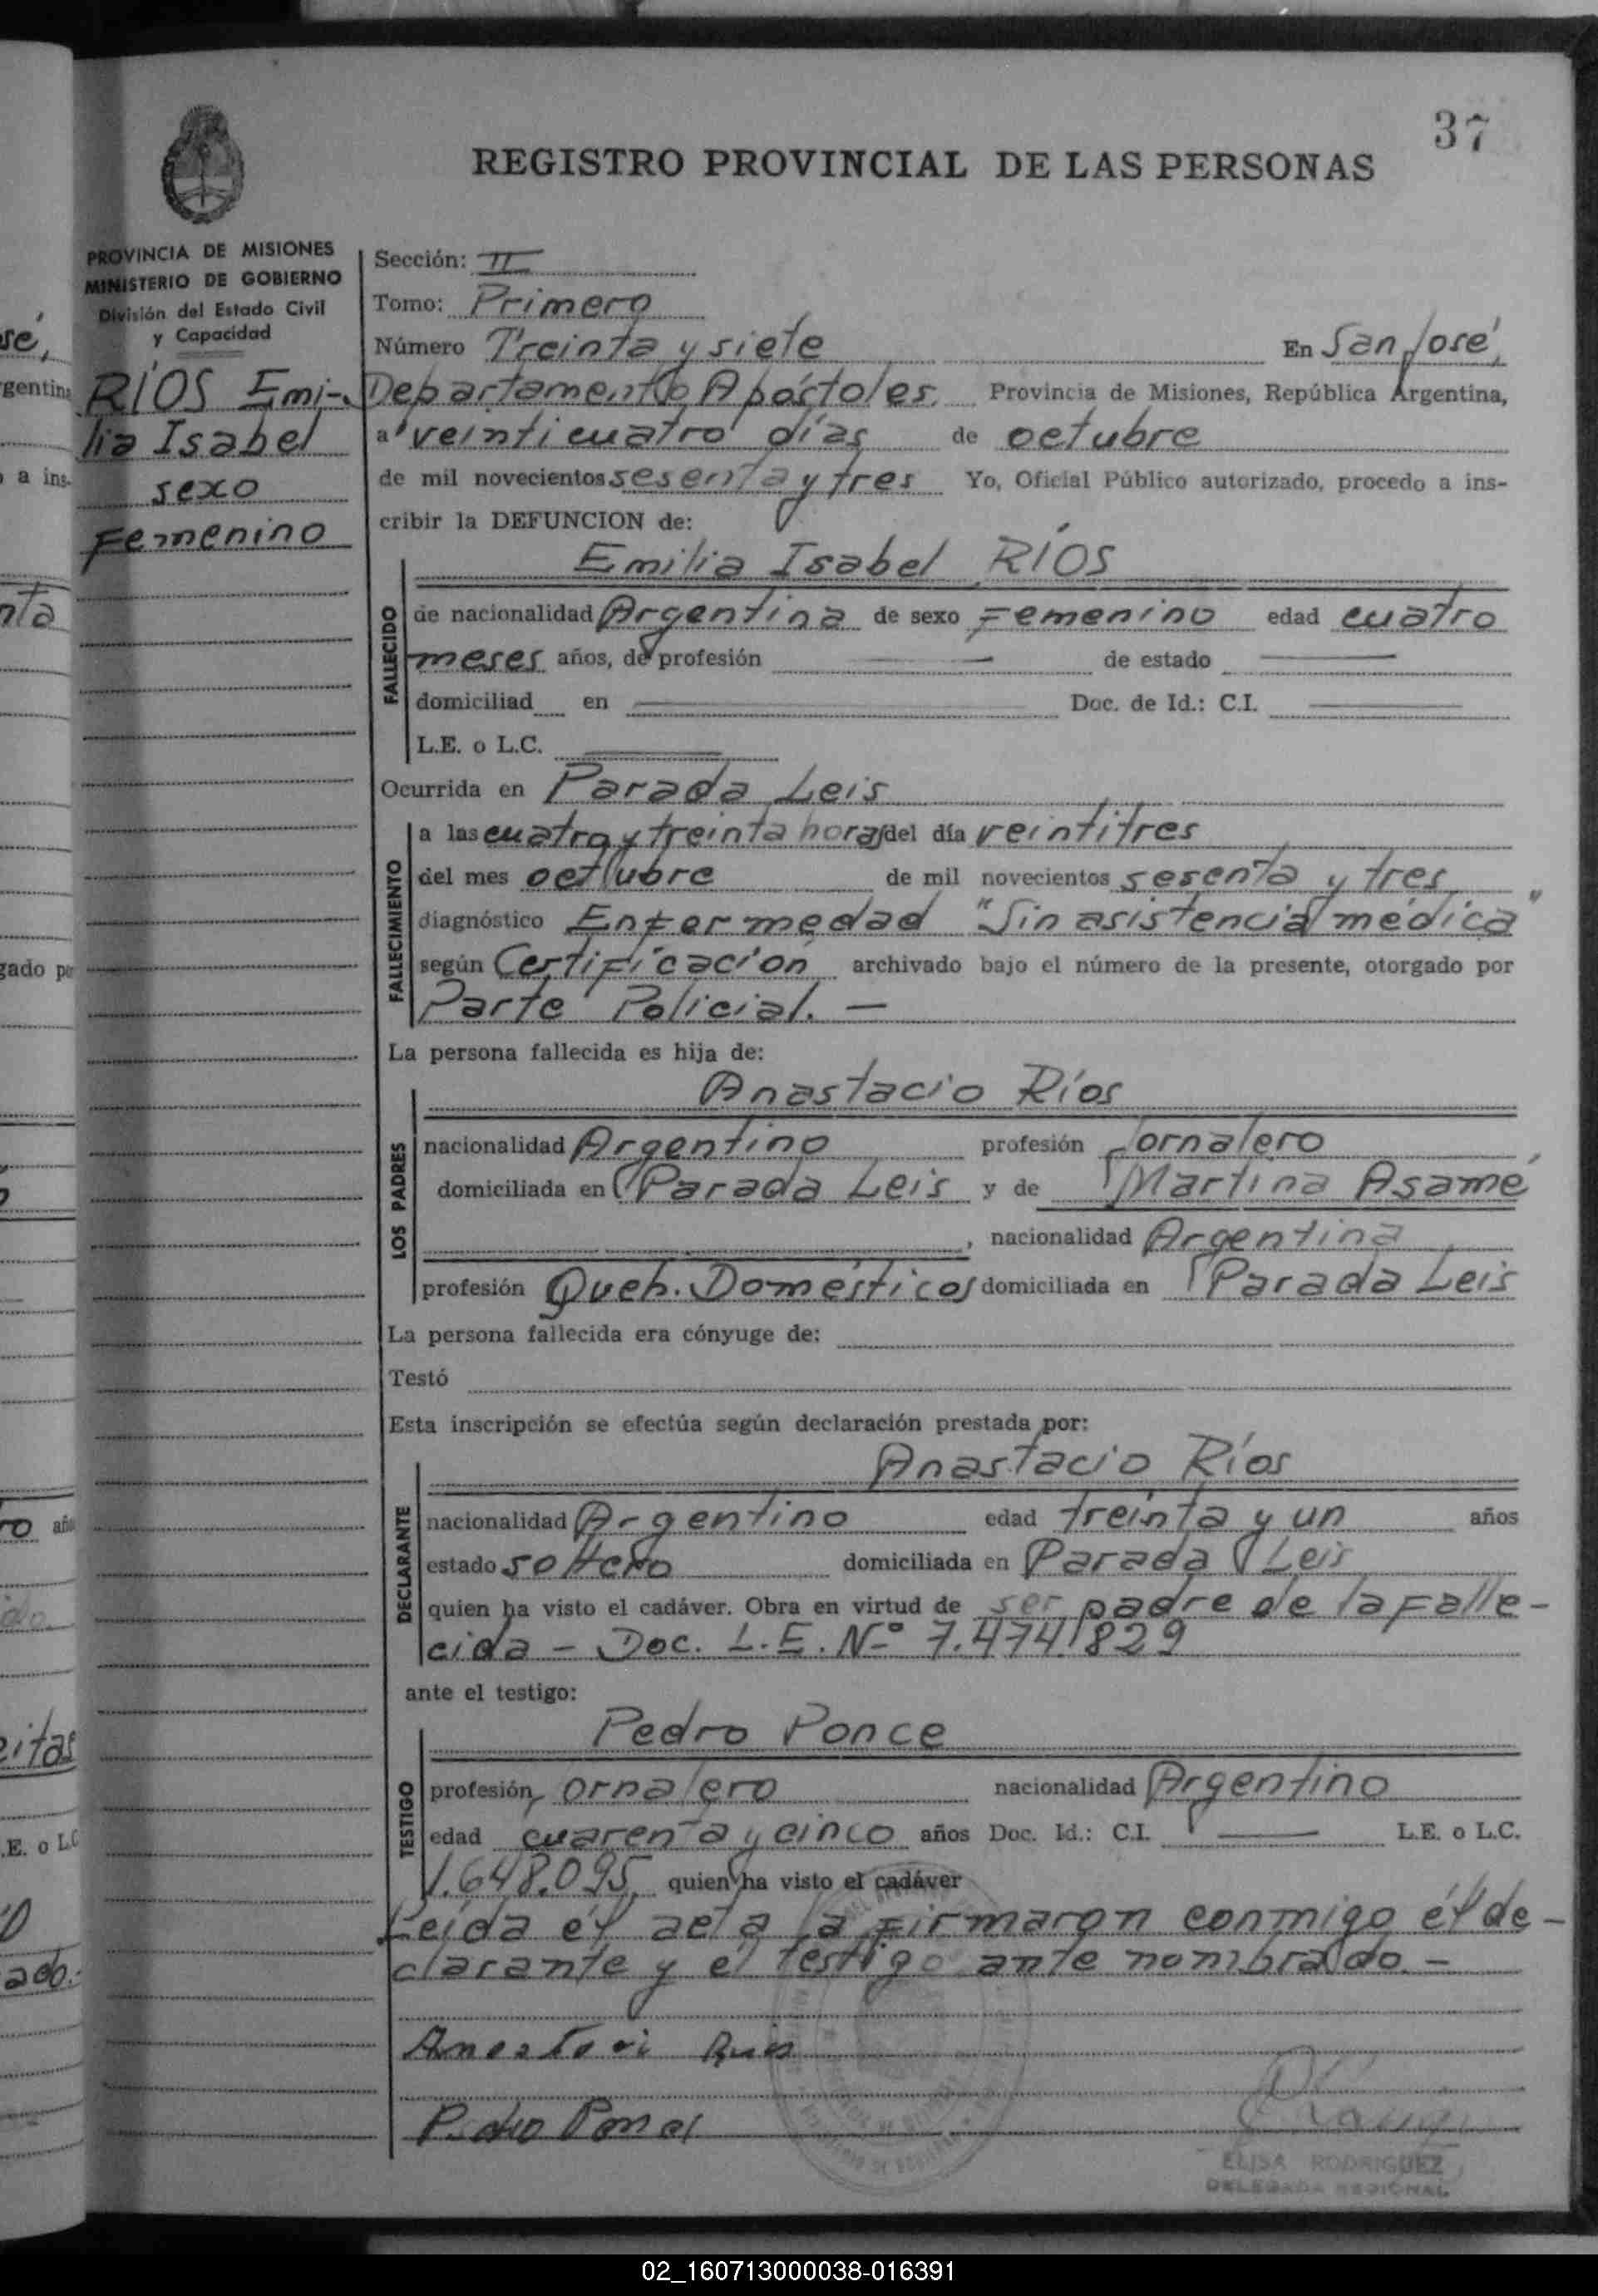 37
REGISTRO PROVINCIAL DE LAS PERSONAS
PROVINCIA DE MISIONES
MINISTERIO DE GOBIERNO
División del Estado Civil
y Capacidad
RÍOS Emi-
lia Isabel
sexo
Femenino
Sección: II
Tomo: Primero
Número Treinta y siete En San José,
Departamento Apóstoles, Provincia de Misiones, República Argentina,
a veinticuatro días de octubre
de mil novecientos sesenta y tres Yo, Oficial Público autorizado, procedo a ins-
cribir la DEFUNCION de:
Emilia Isabel RÍOS
FALLECIDO
de nacionalidad Argentina de sexo Femenino edad cuatro
meses años, de profesión — de estado —
domiciliad en — Doc. de Id.: C.I. —
L.E. o L.C. —
Ocurrida en Parada Leis
FALLECIMIENTO
a las cuatro y treinta horas del día veintitres
del mes octubre de mil novecientos sesenta y tres,
diagnóstico Enfermedad "Sin asistencia médica"
según Certificación archivado bajo el número de la presente, otorgado por
Parte Policial. —
La persona fallecida es hija de:
Anastacio Ríos
LOS PADRES
nacionalidad Argentino profesión Jornalero
domiciliada en Parada Leis y de Martina Asamé
, nacionalidad Argentina
profesión Queh. Domésticos domiciliada en Parada Leis
La persona fallecida era cónyuge de:
Testó
Esta inscripción se efectúa según declaración prestada por:
Anastacio Ríos
DECLARANTE
nacionalidad Argentino edad treinta y un años
estado soltero domiciliada en Parada Leis
quien ha visto el cadáver. Obra en virtud de ser padre de la falle-
cida — Doc. L.E. Nº 7.474.829
ante el testigo:
Pedro Ponce
TESTIGO
profesión Jornalero nacionalidad Argentino
edad cuarenta y cinco años Doc. Id.: C.I. — L.E. o L.C.
1.648.095, quien ha visto el cadáver
Leída él acta la firmaron conmigo él de-
clarante y el testigo ante nombrado. —
ELISA RODRIGUEZ
DELEGADA REGIONAL
02_160713000038-016391